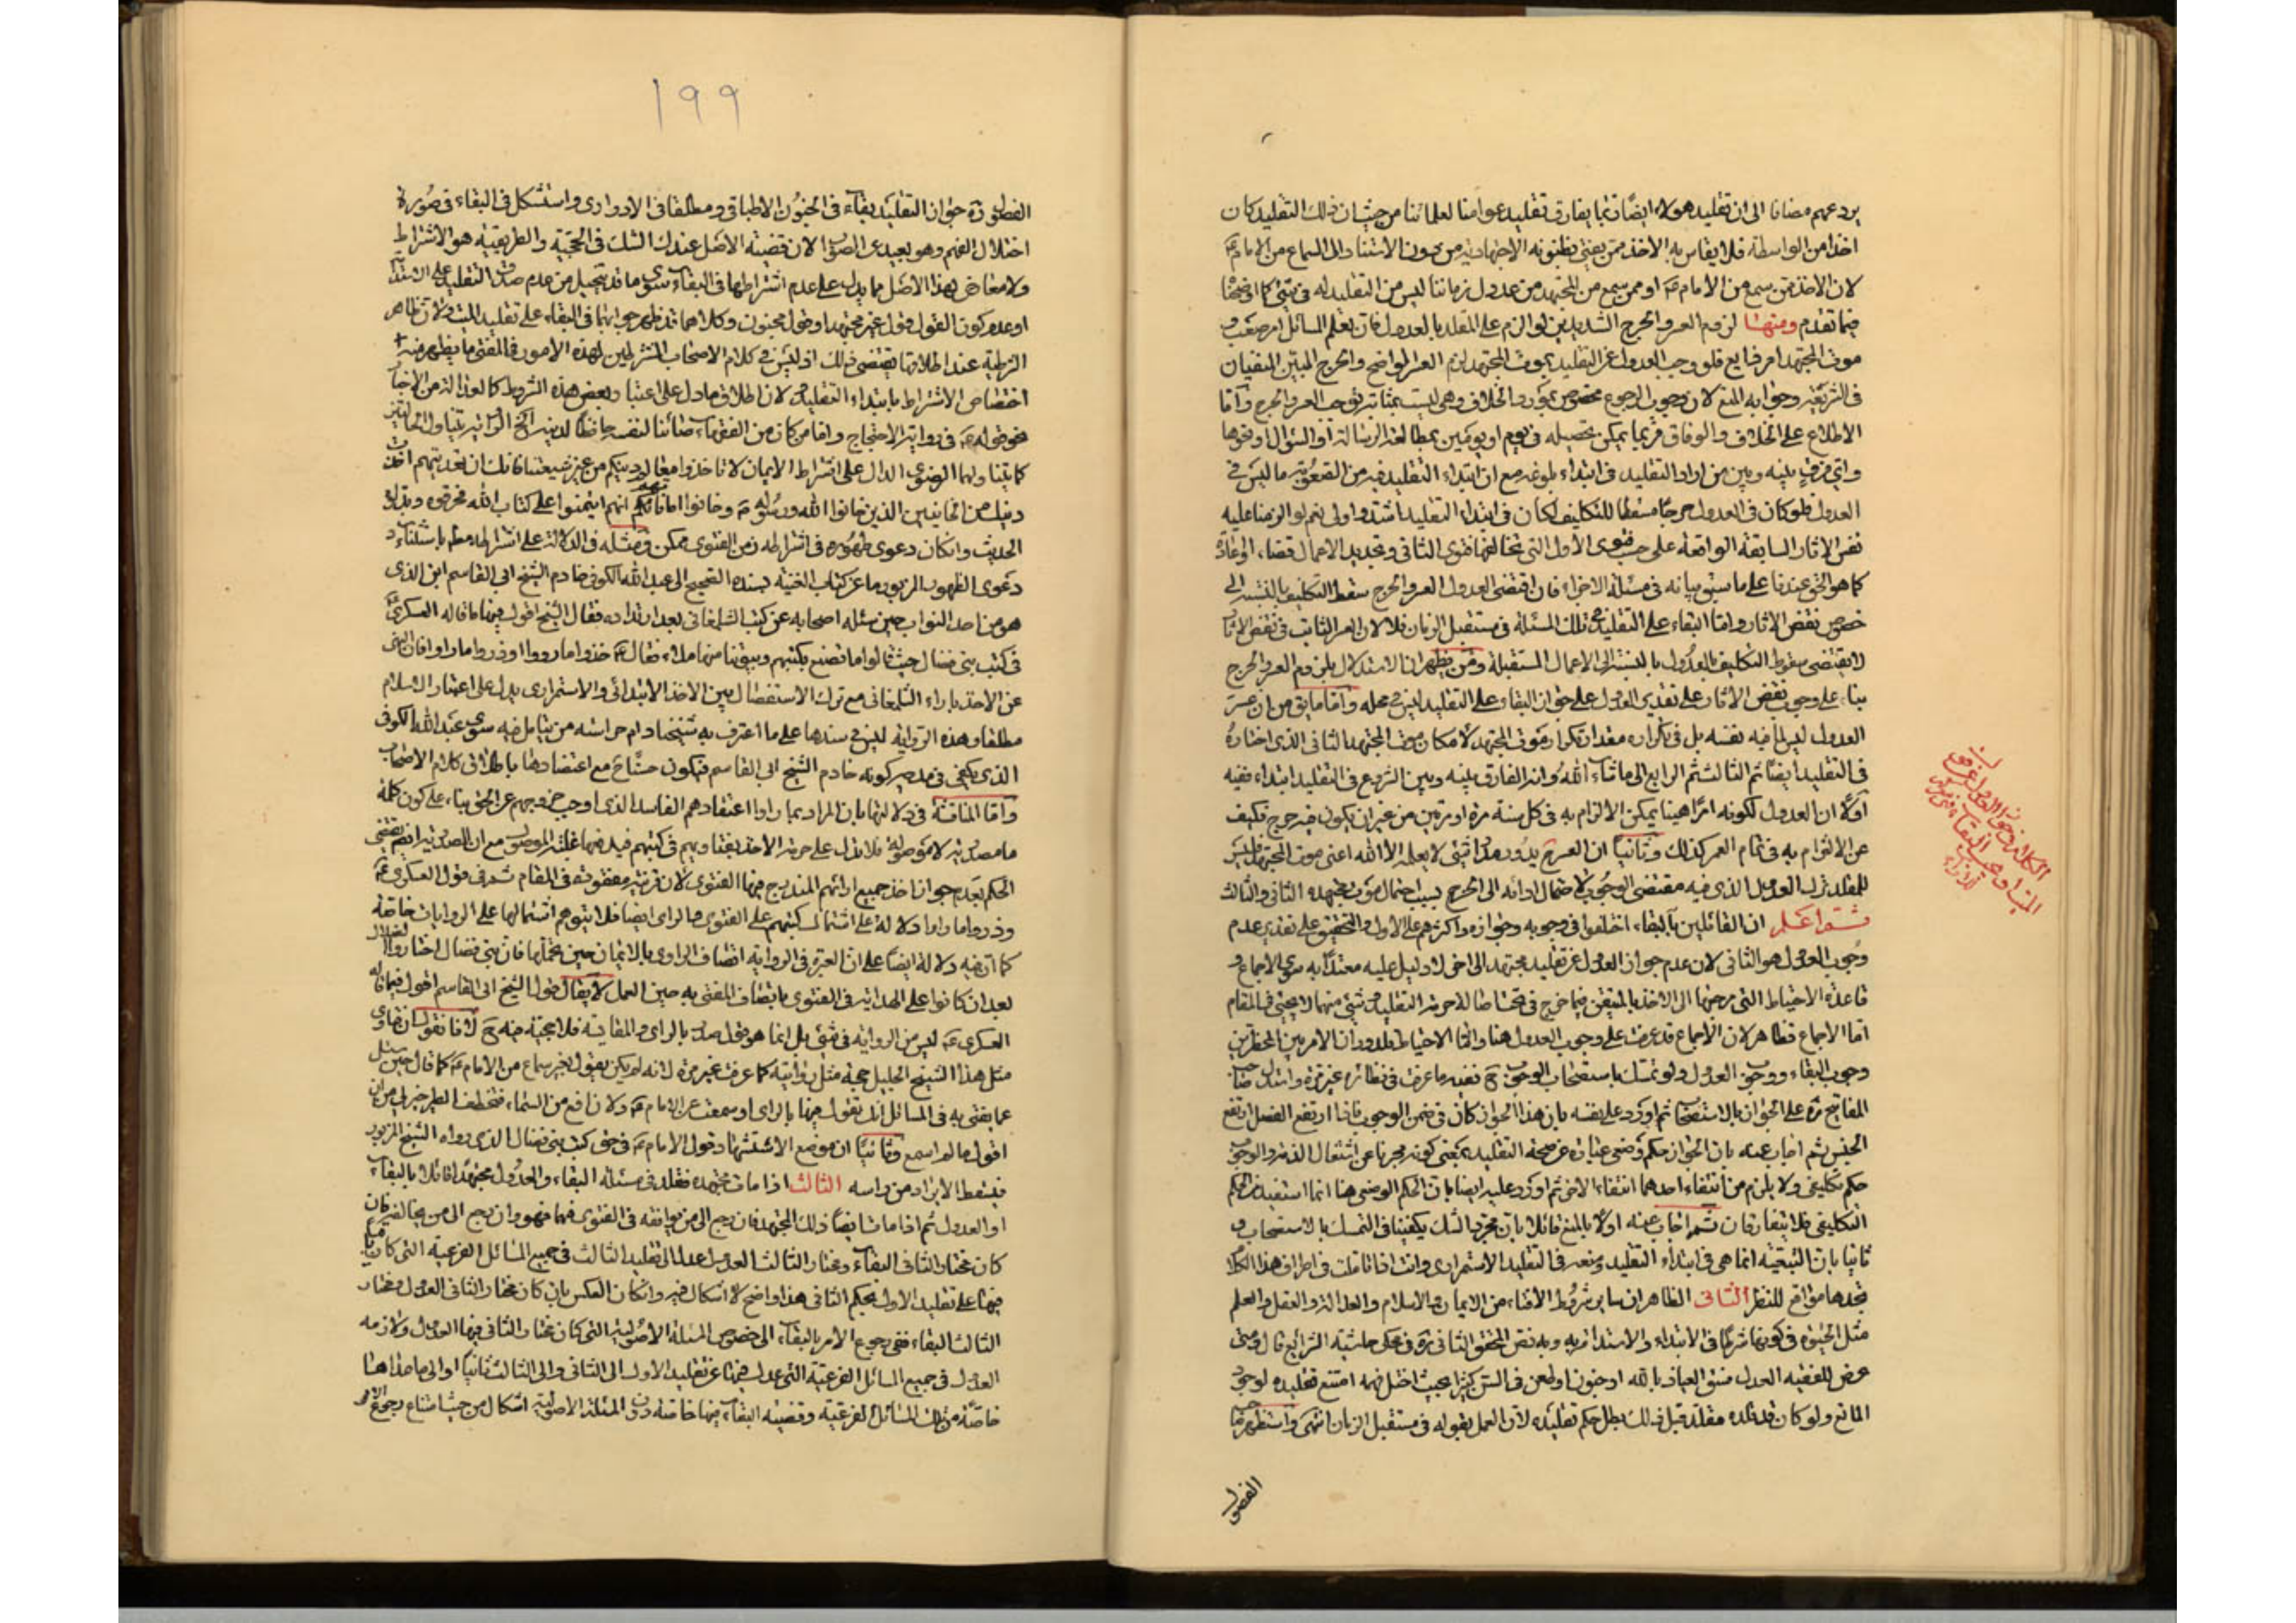 يردعهم مضافا الى ان تقليد هؤلاء ايضا ربما يفارق تقليد عوامنا لعلمائنا من حيث ان ذلك التقليد كان
اخذا من الواسطة فلا يقاس به الاخذ ممن يفتى بظنونه الاجتهادية من دون الاستناد الى السماع من الامام ع
لان الاخذ ممن سمع من الامام ع او ممن سمع من المجتهد من عدول زماننا ليس من التقليد له فى شئ كما اوضحنا
فيما تقدم ومنها لزوم العسر والحرج الشديدين لو الزم على المقلد بالعدول فان تعلم المسائل امر صعب و
موت المجتهد امر شايع فلو وجب العدول عن التقليد بموت المجتهد لزم العسر الواضح والحرج المبين المنفيان
فى الشريعة وجوابه المنع لان وجوب الرجوع مختص بموارد الخلاف وهى ليست بمثابة توجب العسر والحرج واما
الاطلاع على الخلاف والوفاق فربما يمكن تحصيله فى يوم او يومين بمطالعة الرسالة او السؤال او نحوها
واى فرق بينه وبين من اراد التقليد فى ابتداء بلوغه مع ان ابتداء التقليد فيه من الصعوبة ما ليس فى
العدول فلو كان فى العدول حرجا مسقطا للتكليف لكان فى ابتداء التقليد اشد واولى نعم لو الزمنا عليه
نقض الاثار السابقة الواقعة على حسب فتوى الاول التى تخالفها فتوى الثانى وتجديد الاعمال قضاء او اعادة
كما هو الحق عندنا على ما سبق بيانه فى مسئلة الاجزاء فان اقتضى العدول العسر والحرج سقط التكليف بالنسبة الى
خصوص نقض الاثار واما البقاء على التقليد فى تلك المسئلة فى مستقبل الزمان فلا لان العسر الثابت فى نقض الاثار
لا يقتضى سقوط التكليف بالعدول بالنسبة الى الاعمال المستقبلة ومن يظهر ان الاستدلال بلزوم العسر والحرج
بناء على وجوب نقض الاثار على تقدير العدول على جواز البقاء على التقليد ليس فى محله واما ما يق من ان عسر
العدول ليس لما فيه نفسه بل فى تكراره مقدار تكرار موت المجتهد لامكان موت المجتهد الثانى الذى اختاره
فى التقليد ايضا ثم الثالث ثم الرابع الى ما شاء الله وانه الفارق بينه وبين الشروع فى التقليد ابتداء ففيه
اولا ان العدول لكونه امرا هينا يمكن الالزام به فى كل سنة مرة او مرتين من غير ان يكون فيه حرج فكيف
عن الالتزام به فى تمام العمر كذلك وثانيا ان العسر ح يدور مدار شئ لا يعلمه الا الله اعنى موت المجتهد فليس
للمقلد ترك العدول الذى فيه مقتضى الوجوب لاحتمال ادائه الى الحرج بسبب احتمال موت مجتهده الثانى والثالث
ثم اعلم ان القائلين بالبقاء اختلفوا فى وجوبه وجوازه واكثرهم على الاول والتحقيق على تقدير عدم
وجوب العدول هو الثانى لان عدم جواز العدول عن تقليد مجتهد الى اخر لا دليل عليه معتدا به سوى الاجماع و
قاعدة الاحتياط التى مرجعها الى الاخذ بالمتيقن فيما خرج من تحت اصالة حرمة التقليد وشئ منهما لا يجئ فى المقام
اما الاجماع فظاهر لان الاجماع قد عرفت على وجوب العدول هنا واما الاحتياط فلدوران الامر بين المحذورين
وجوب البقاء ووجوب العدول ولو تمسك باستصحاب الوجوب ح ففيه ما عرفت فى نظائره غير مرة واستدل صاحب
المفاتيح ره على الجواز بالاستصحاب ثم اورد على نفسه بان هذا الجواز كان فى ضمن الوجوب فاذا ارتفع الفصل ارتفع
الجنس ثم اجاب عنه بان الجواز حكم وضعى عبارة عن صحة التقليد بمعنى كونه مجزيا عن اشتغال الذمة والوجوب
حكم تكليفى ولا يلزم من انتفاء احدهما انتفاء الاخر ثم اورد عليه ايضا بان الحكم الوضعى هنا انما استفيد من الحكم
التكليفى فلا يتفارقان ثم اجاب عنه اولا بالمنع قائلا بان مجرد الشك يكفينا فى التمسك بالاستصحاب و
ثانيا بان التبعية انما هى فى ابتداء التقليد ونعرف التقليد الاستمرارى وانت اذا تاملت فى اطراف هذا الكلام
تجدها مواقع للنظر الثانى الظاهر ان ساير شروط الافتاء من الايمان والاسلام والعدالة والعقل والعلم
مثل الحيوة فى كونها شرطا فى الابتداء والاستدامة وبه نص المحقق الثانى ره فى محكى حاشية الشرايع قال ومتى
عرض للفقيه العدل فسق العياذ بالله او جنون او طعن فى السن كثيرا بحيث اختل فهمه امتنع تقليده لوجود
المانع ولو كان قد قلده مقلد قبل ذلك بطل حكم تقليده لان العمل بقوله فى مستقبل الزمان انتهى واستظهر صاحب
الفصول
١٩٩
الفصول ره جواز التقليد بقاء فى الجنون الاطباقى ومطلقا فى الادوارى واستشكل فى البقاء فى صورة
اختلال الفهم وهو بعيد عن الصواب لان قضية الاصل عندك الشك فى الحجية والطريقية هو الاشتراط
ولا معارض لهذا الاصل مما يدل على عدم اشتراطها فى البقاء سوى ما قد يتخيل من عدم صدق التقليد على الاستدامة
او عدم كون القول قول غير مجتهد او قول مجنون وكلاهما قد ظهر جوابهما فى البقاء على تقليد الميت ولان ظاهر
الشرطية عند اطلاقها يقتضى ذلك اذ ليس فى كلام الاصحاب المشترطين لهذه الامور فى المفتى ما يظهر منه
اختصاص الاشتراط بابتداء التقليد ولان اطلاق ما دل على اعتبار بعض هذه الشروط كالعدالة من الاخبار
نحو قوله ع فى رواية الاحتجاج واما من كان من الفقهاء صائنا لنفسه حافظا لدينه الخ الرواية يتناول الحالتين
كما بيننا ولهما الرضوى الدال على اشتراط الايمان لا تاخذوا معالم دينكم من غير شيعتنا فانك ان تعديتهم اخذت
دينك من الخائنين الذين خانوا الله ورسوله ص وخانوا اماناتهم انهم ائتمنوا على كتاب الله فحرفوه وبدلوه
الحديث وانكان دعوى ظهوره فى اشتراطه زمن الفتوى ممكن ومثله فى الدلالة على اشتراطه مطم باستثناء
دعوى الظهور المزبور ما عن كتاب الغيبة بسنده الصحيح الى عبد الله الكوفى خادم الشيخ ابى القاسم ابن الذى
هو من احد النواب حين سئله اصحابه عن كتب الشلمغانى بعد ارتداده فقال الشيخ اقول فيها ما قاله العسكرى ع
فى كتب بنى فضال حيث قالوا ما نصنع بكتبهم وبيوتنا منها ملاء فقال ع خذوا ما رووا وذروا ما راوا فان النهى
عن الاخذ باراء الشلمغانى مع ترك الاستفصال بين الاخذ الابتدائى والاستمرارى يدل على اعتبار الاسلام
مطلقا وهذه الرواية ليس فى سندها على ما اعترف به شيخنا دام حراسته من يتامل فيه سوى عبد الله الكوفى
الذى يكفى فى مدحه كونه خادم الشيخ ابى القاسم فيكون حسنا مع اعتضادها باطلاق كلام الاصحاب
واما المناقشة فى دلالتها بان المراد بما راوا اعتقادهم الفاسد الذى اوجب خروجهم عن الحق بناء على كون كلمة
ما مصدرية لا موصولة فلا تدل على حرمة الاخذ بفتاويهم فى كتبهم فيدفعها غلبة الموصول مع ان المصدرية ايضا تقتضى
الحكم بعدم جواز اخذ جميع ارائهم المندرج فيها الفتوى لان قرينة مفقودة فى المقام ثم فى قول العسكرى ع
وذروا ما راوا دلالة على اشتمال كتبهم على الفتوى والراى ايضا فلا يتوهم اشتمالها على الروايات خاصة
كما ان فيه دلالة ايضا على ان العبرة فى الرواية اتصاف الراوى بالايمان حين تحملها فان بنى فضال اختاروا الضلال
بعد ان كانوا على الهداية فى الفتوى باتصاف المفتى به حين العمل لا يقال قول الشيخ ابى القاسم اقول فيها ما قاله
العسكرى ع ليس من الرواية فى شئ بل انما هو قول صدر بالراى والمقايسة فلا حجية فيه ح لانا نقول ان فتاوى
مثل هذا الشيخ الجليل حجة مثل روايته كما عرفت غير مرة لانه لم يكن يقول بغير سماع من الامام ع كما قال حين سئل
عما يفتى به فى المسائل انك تقول فيها بالراى او سمعت عن الامام ع ولان اقع من السماء فتخطف الطير خير لى من ان
اقول ما لم اسمع وثانيا ان موضع الاستشهاد قول الامام ع فى حق كتب بنى فضال الذى رواه الشيخ المزبور
فيسقط الايراد من راسه الثالث اذا مات مجتهده فقلد فى مسئلة البقاء والعدول مجتهدا قائلا بالبقاء
او العدول ثم اذا مات ايضا ذلك المجتهد فان رجع الى من يوافقه فى الفتوى فهو هو وان رجع الى من يخالفه فان
كان مختار الثانى البقاء ومختار الثالث العدول عدل الى تقليد الثالث فى جميع المسائل الفرعية التى كان باقيا
فيها على تقليد الاول بحكم الثانى هذا واضح لا اشكال فيه وان كان العكس بان كان مختار الثانى العدول ومختار
الثالث البقاء ففى رجوع الامر بالبقاء الى خصوص المسئلة الاصولية التى كان مختار الثانى فيها العدول ولازمه
العدول فى جميع المسائل الفرعية التى عدل فيها عن تقليد الاول الى الثانى والى الثالث ثانيا او الى ما عداها
خاصة من تلك المسائل الفرعية وقضية البقاء فيها خاصة دون المسئلة الاصولية اشكال من حيث امتناع رجوع الامر